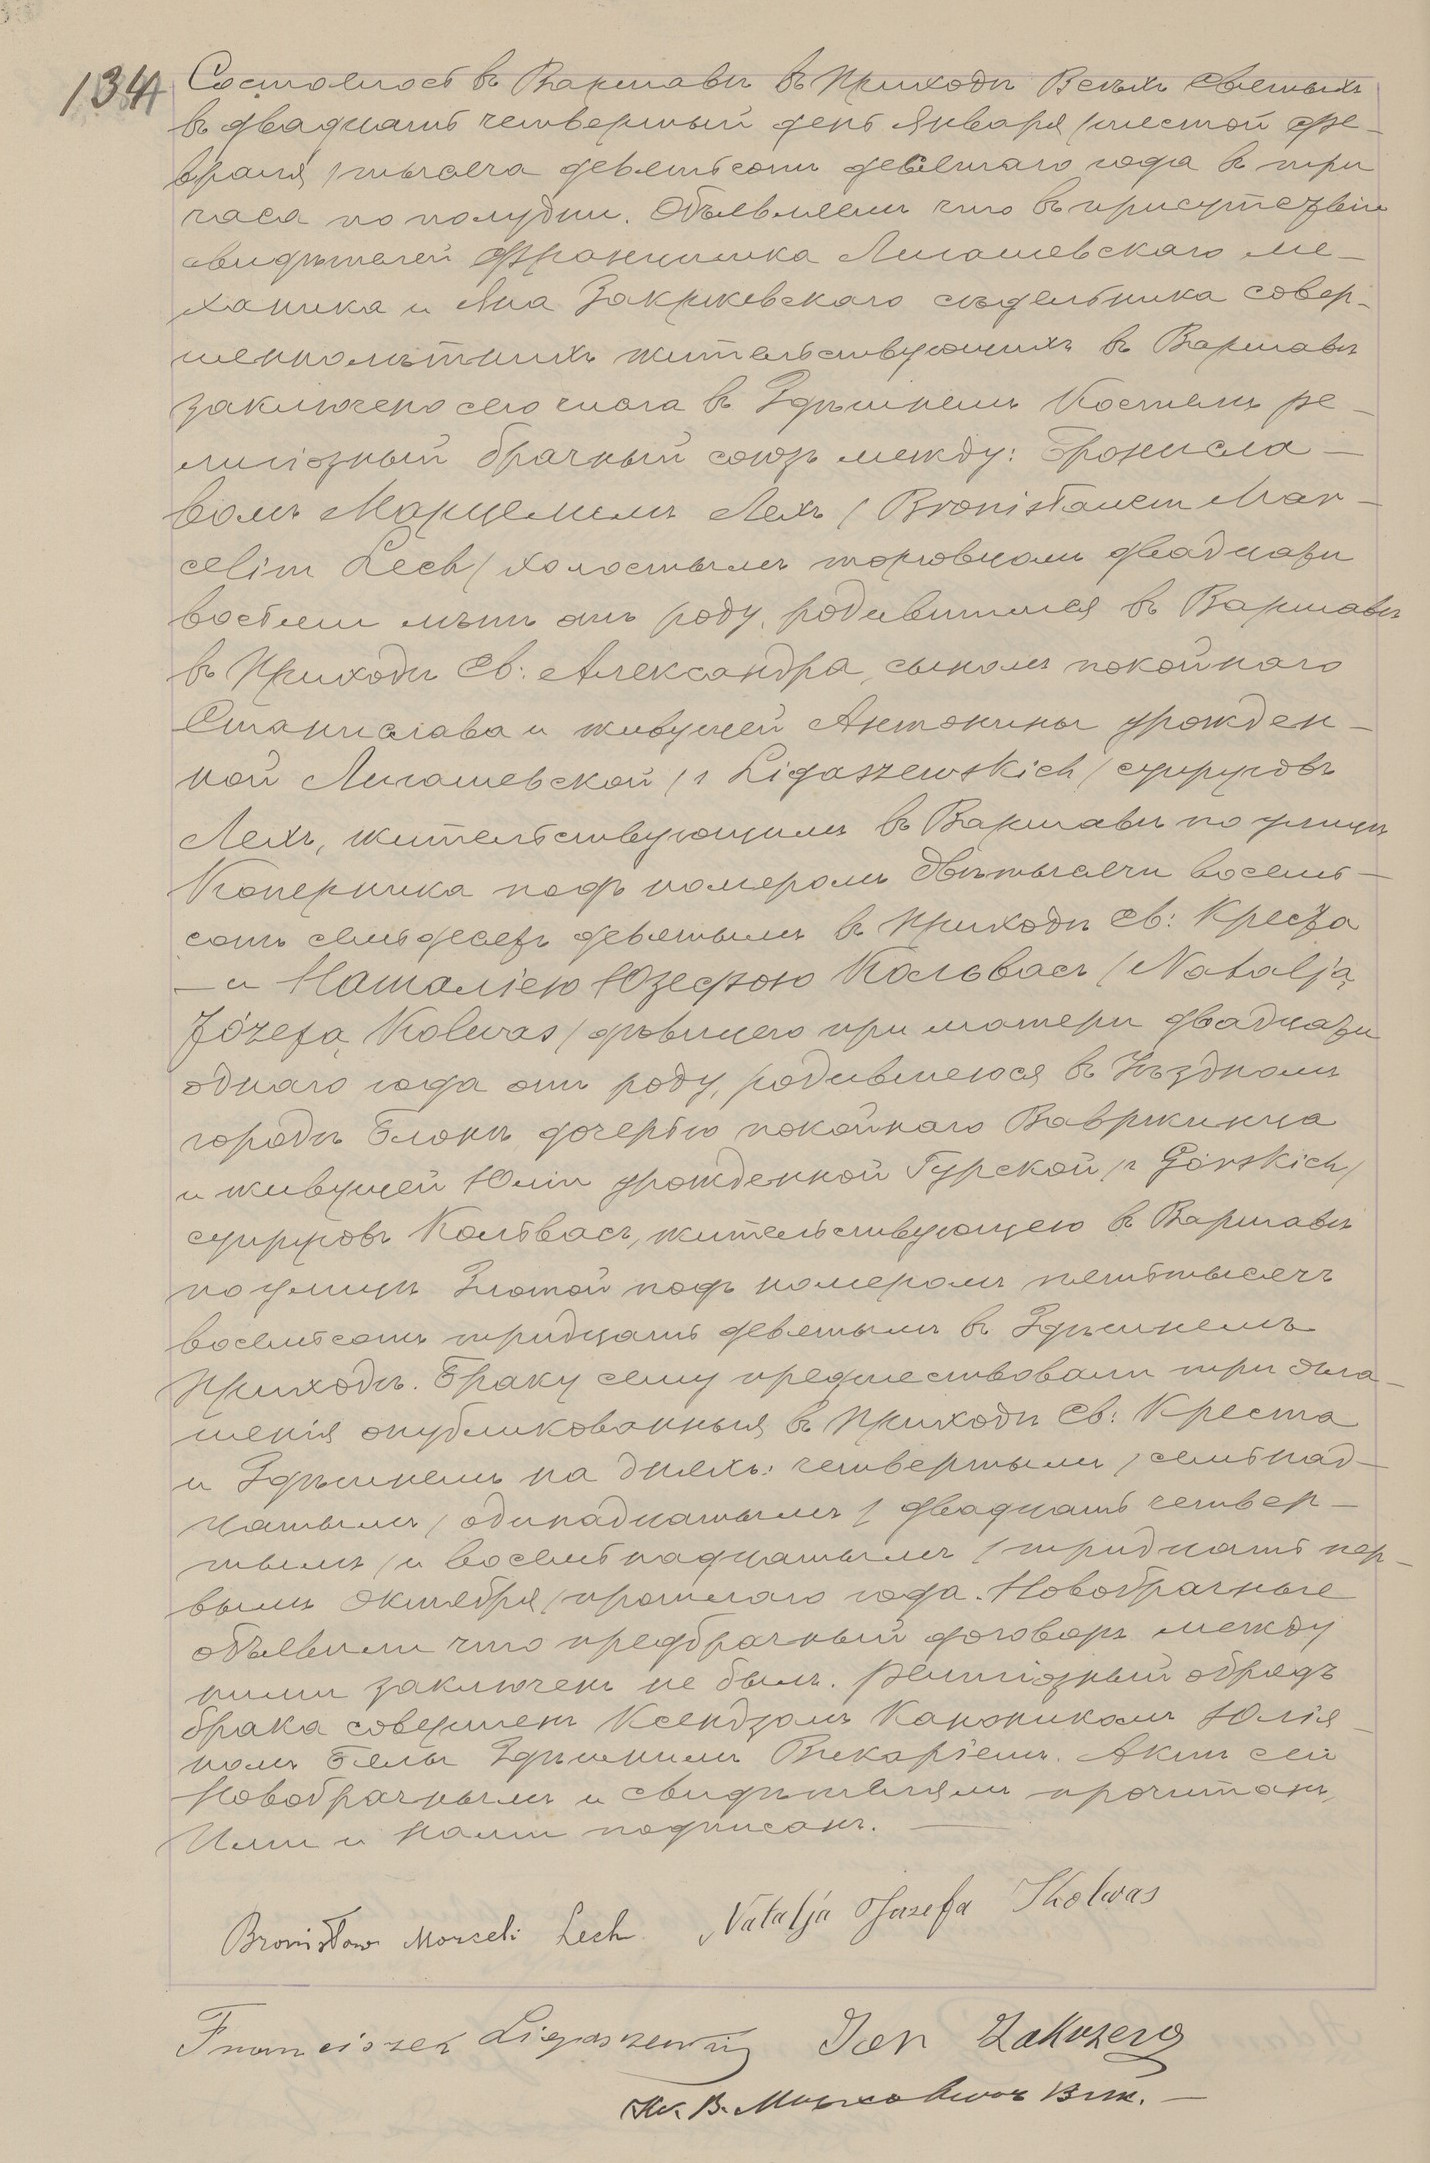 134
Состоялось въ Варшавѣ въ Приходѣ Всѣхъ Святыхъ
въ двадцать четвертый день Января /шестой Фе-
враля/ тысяча девятьсотъ девятаго года въ три
часа по полудни. Объявляемъ что въ присутствіи
свидѣтелей Францишка Лигашевскаго ме-
ханика и Яна Закржевскаго сѣдельника совер-
шеннолѣтнихъ жительствующихъ въ Варшавѣ
заключено сего числа въ Здѣшнемъ Костелѣ ре-
лигіозный брачный союзъ между: Брониcла-
вомъ Марцелимъ Лехъ /Bronisławem Mar-
celim Lech/ холостымъ торговцомъ двадцати
восьми лѣтъ отъ роду, родившимся въ Варшавѣ
въ Приходѣ Св: Александра, сыномъ покойнаго
Станислава и живущей Антонины урожден-
ной Лигашевской /z Ligaszewskich/ супруговъ
Лехъ, жительствующимъ въ Варшавѣ по улицѣ
Коперника подъ номеромъ двѣтысячи восемь-
сотъ семьдесятъ девятымъ въ Приходѣ Св: Креста
— и Наталіею Юзефою Кольвасъ /Natalją
Józefą Kolwas/ дѣвицею при матери двадцати
однаго года отъ роду, родившеюся въ Уѣздномъ
городѣ Блонѣ дочерью покойнаго Вавржинца
и живущей Юліи урожденной Гурской /z Górskich/
супруговъ Кольвасъ, жительствующею въ Варшавѣ
по улицѣ Злотой подъ номеромъ пятьтысячъ
восемьсотъ тридцать девятымъ въ Здѣшнемъ
Приходѣ. Браку сему предшествовали три огла-
шенія опубликованныя въ Приходѣ Св: Креста
и Здѣшнемъ на дняхъ: четвертымъ /семьнад-
цатымъ/ одинадцатымъ /двадцать четвер-
тымъ/ и восемьнадцатымъ /тридцать пер-
вымъ Октября/ прошлаго года. Новобрачные
объявили что предбрачный договоръ между
ними заключенъ не былъ. Религіозный обрядъ
брака совершенъ Ксендзомъ Каноникомъ Юлія-
номъ Бялы Здѣшнимъ Викаріемъ. Актъ сей
Новобрачнымъ и свидѣтелямъ прочитанъ,
Ими и Нами подписанъ. —
Bronisław Marceli Lech Natalja Juzefa Kolwas
Franciszek Ligaszewski Jan Zakrzewski
Кс. В. Вик. —